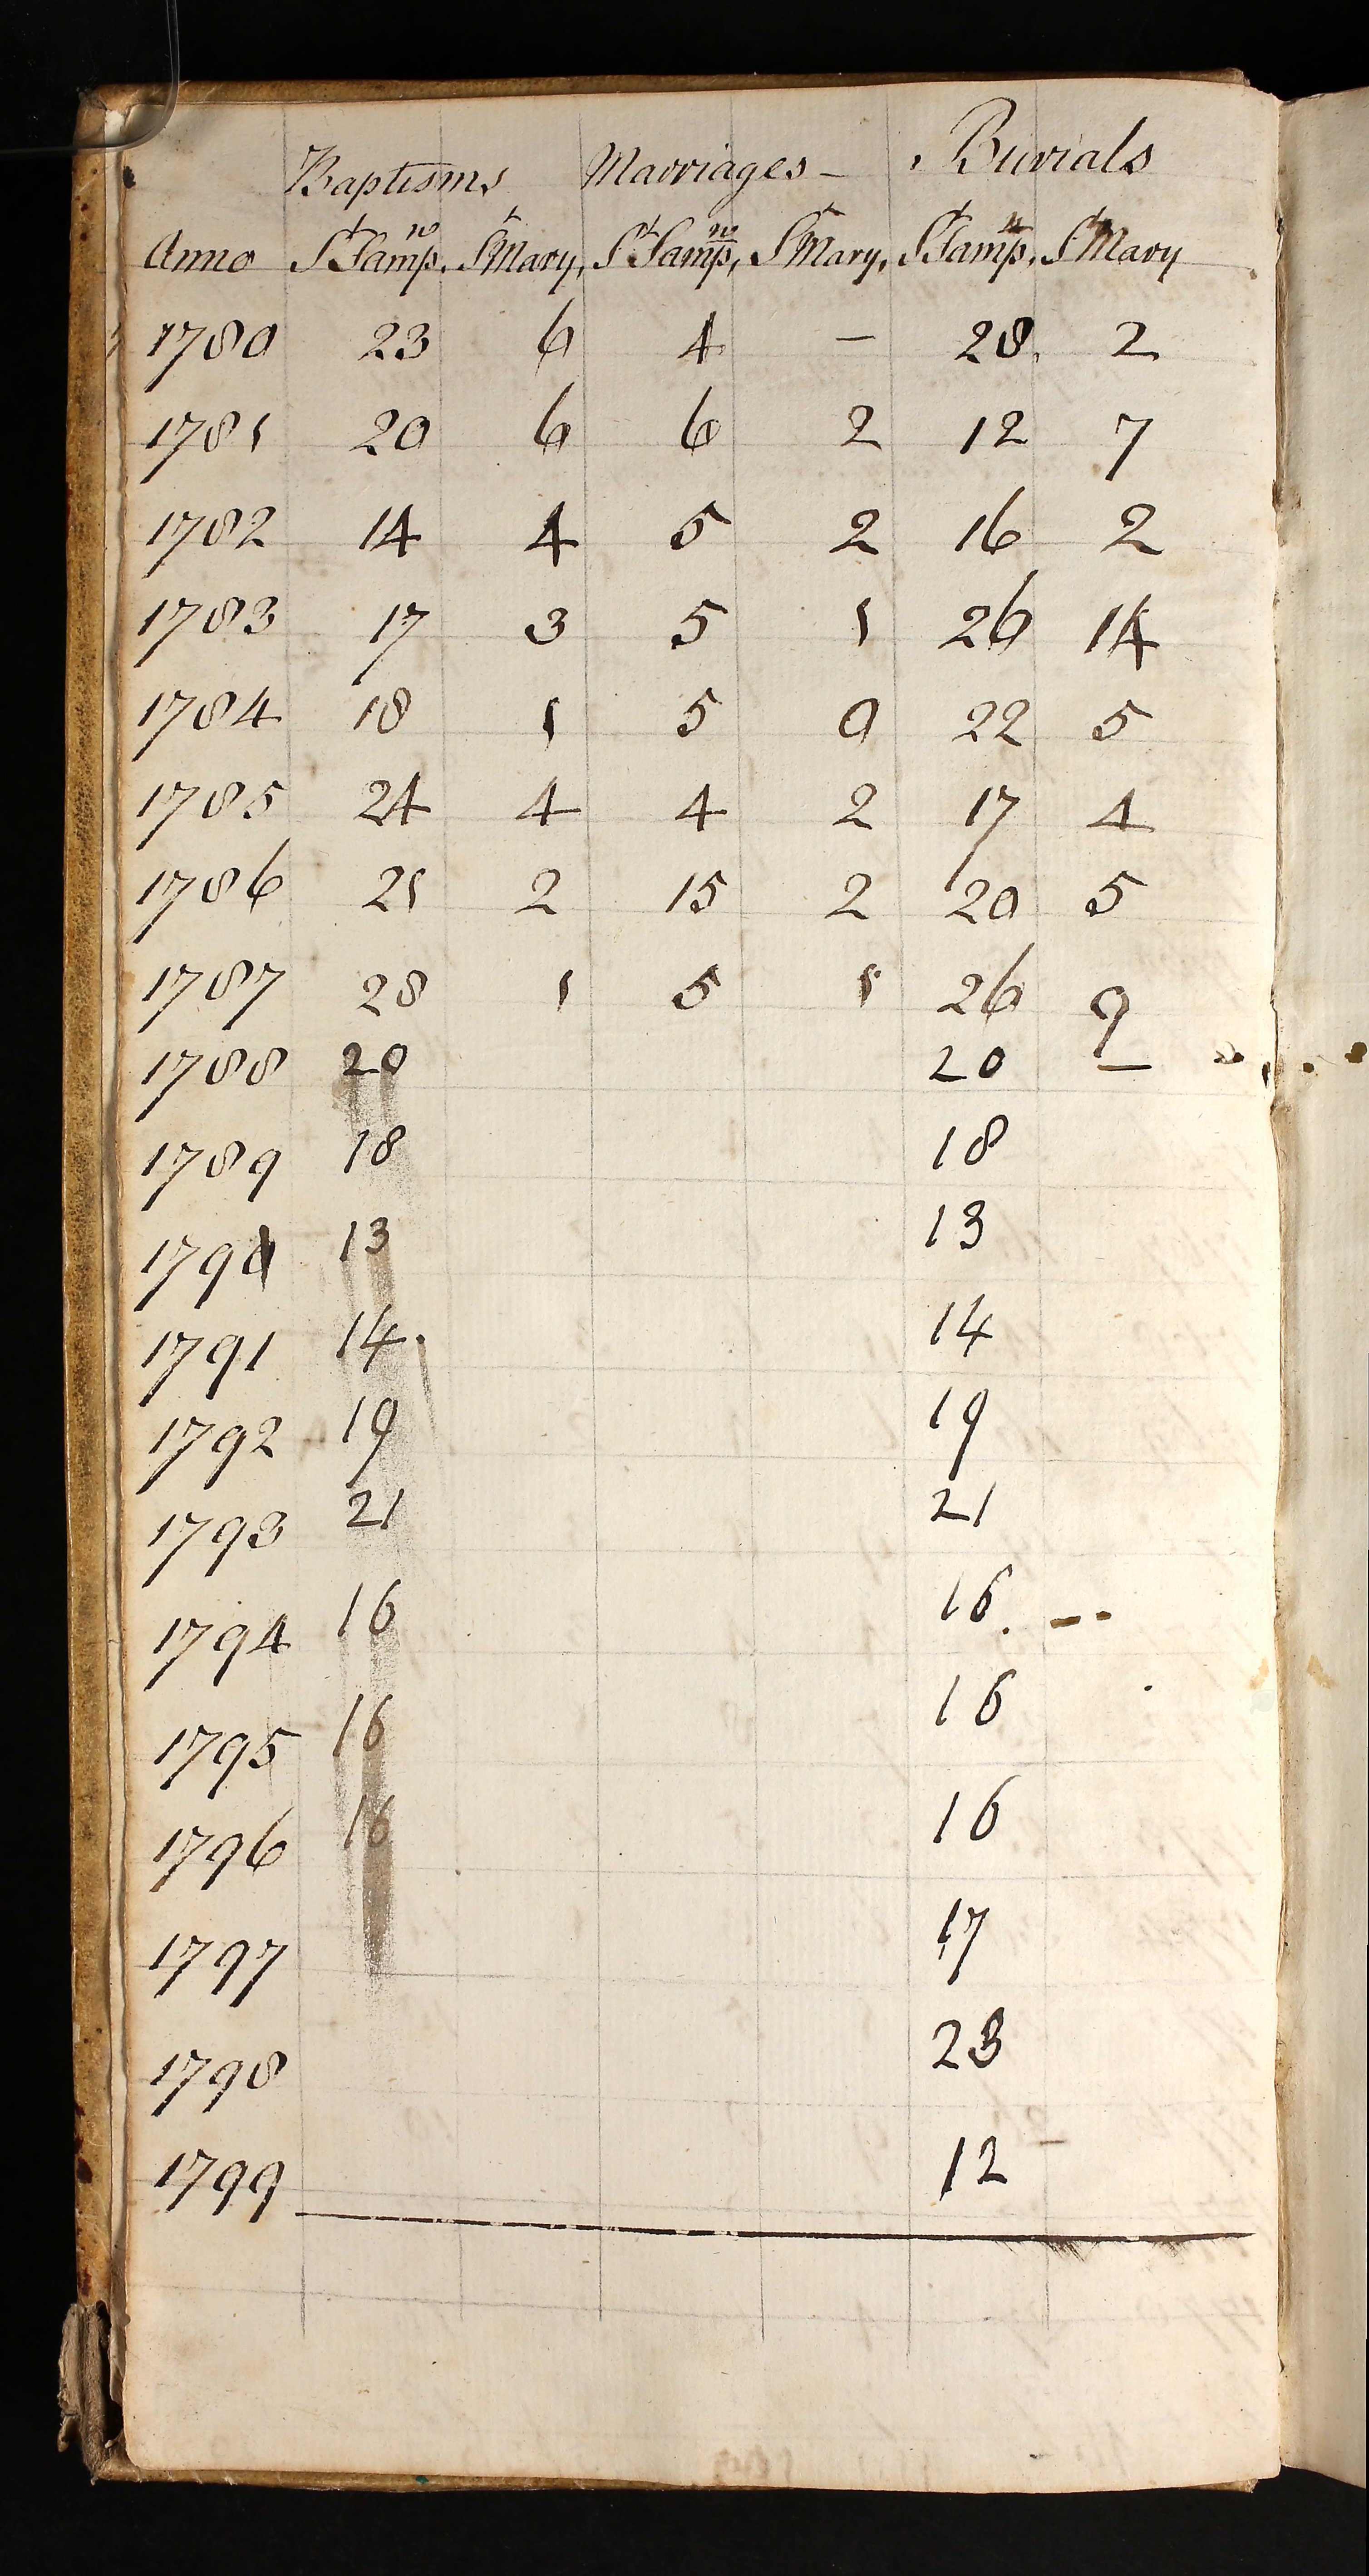 Baptisms Marriages – Burials
Anno St Sampn. St Mary, St Sampn, St Mary, St Sampn. St Mary
1780 23 6 4 – 28. 2
1781 20 6 6 2 12 7
1782 14 4 5 2 16 2
1783 17 3 5 1 26 14
1784 18 1 5 0 22 5
1785 24 4 4 2 17 4
1786 21 2 15 2 20 5
1787 28 1 5 1 26 9
1788 20 20 –
1789 18 18
1790 13 13
1791 14. 14
1792 19 19
1793 21 21
1794 16 16.
1795 16 16
1796 16 16
1797 17
1798 23
1799 12 –